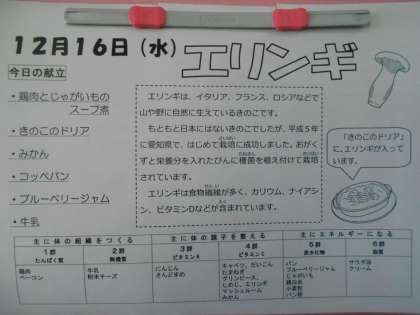 12月16日（水）エリンギ
今日の献立
・鶏肉とじゃがいもの
スープ煮
・きのこのドリア
・みかん
・コッペパン
・ブルーベリージャム
・牛乳
エリンギは、イタリア、フランス、ロシアなどで
山や野に自然に生えているきのこです。
もともと日本にはないきのこでしたが、平成５年
に愛知県で、はじめて栽培に成功しました。おが
くずと栄養分を入れたびんに種菌を植え付けて栽培
されています。
エリンギは食物繊維が多く、カリウム、ナイアシ
ン、ビタミンDなどが含まれています。
「きのこのドリア」
に、エリンギが入って
います。
主に体の組織をつくる 主に体の調子を整える 主にエネルギーになる
1群 2群 3群 4群 5群 6群
たんぱく質 無機質 ビタミンA ビタミンC 炭水化物 脂質
鶏肉 牛乳 にんじん キャベツ、だいこん パン サラダ油
ベーコン 粉末チーズ さんどまめ たまねぎ ブルーベリージャム クリーム
グリンピース、 じゃがいも
しめじ、エリンギ 精白米
マッシュルーム 小麦粉
みかん パン粉